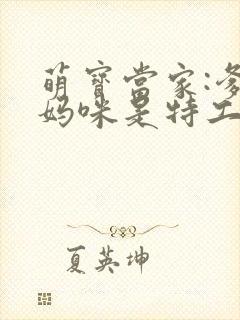 萌寶當家:爹
媽咪是特工
夏英坤